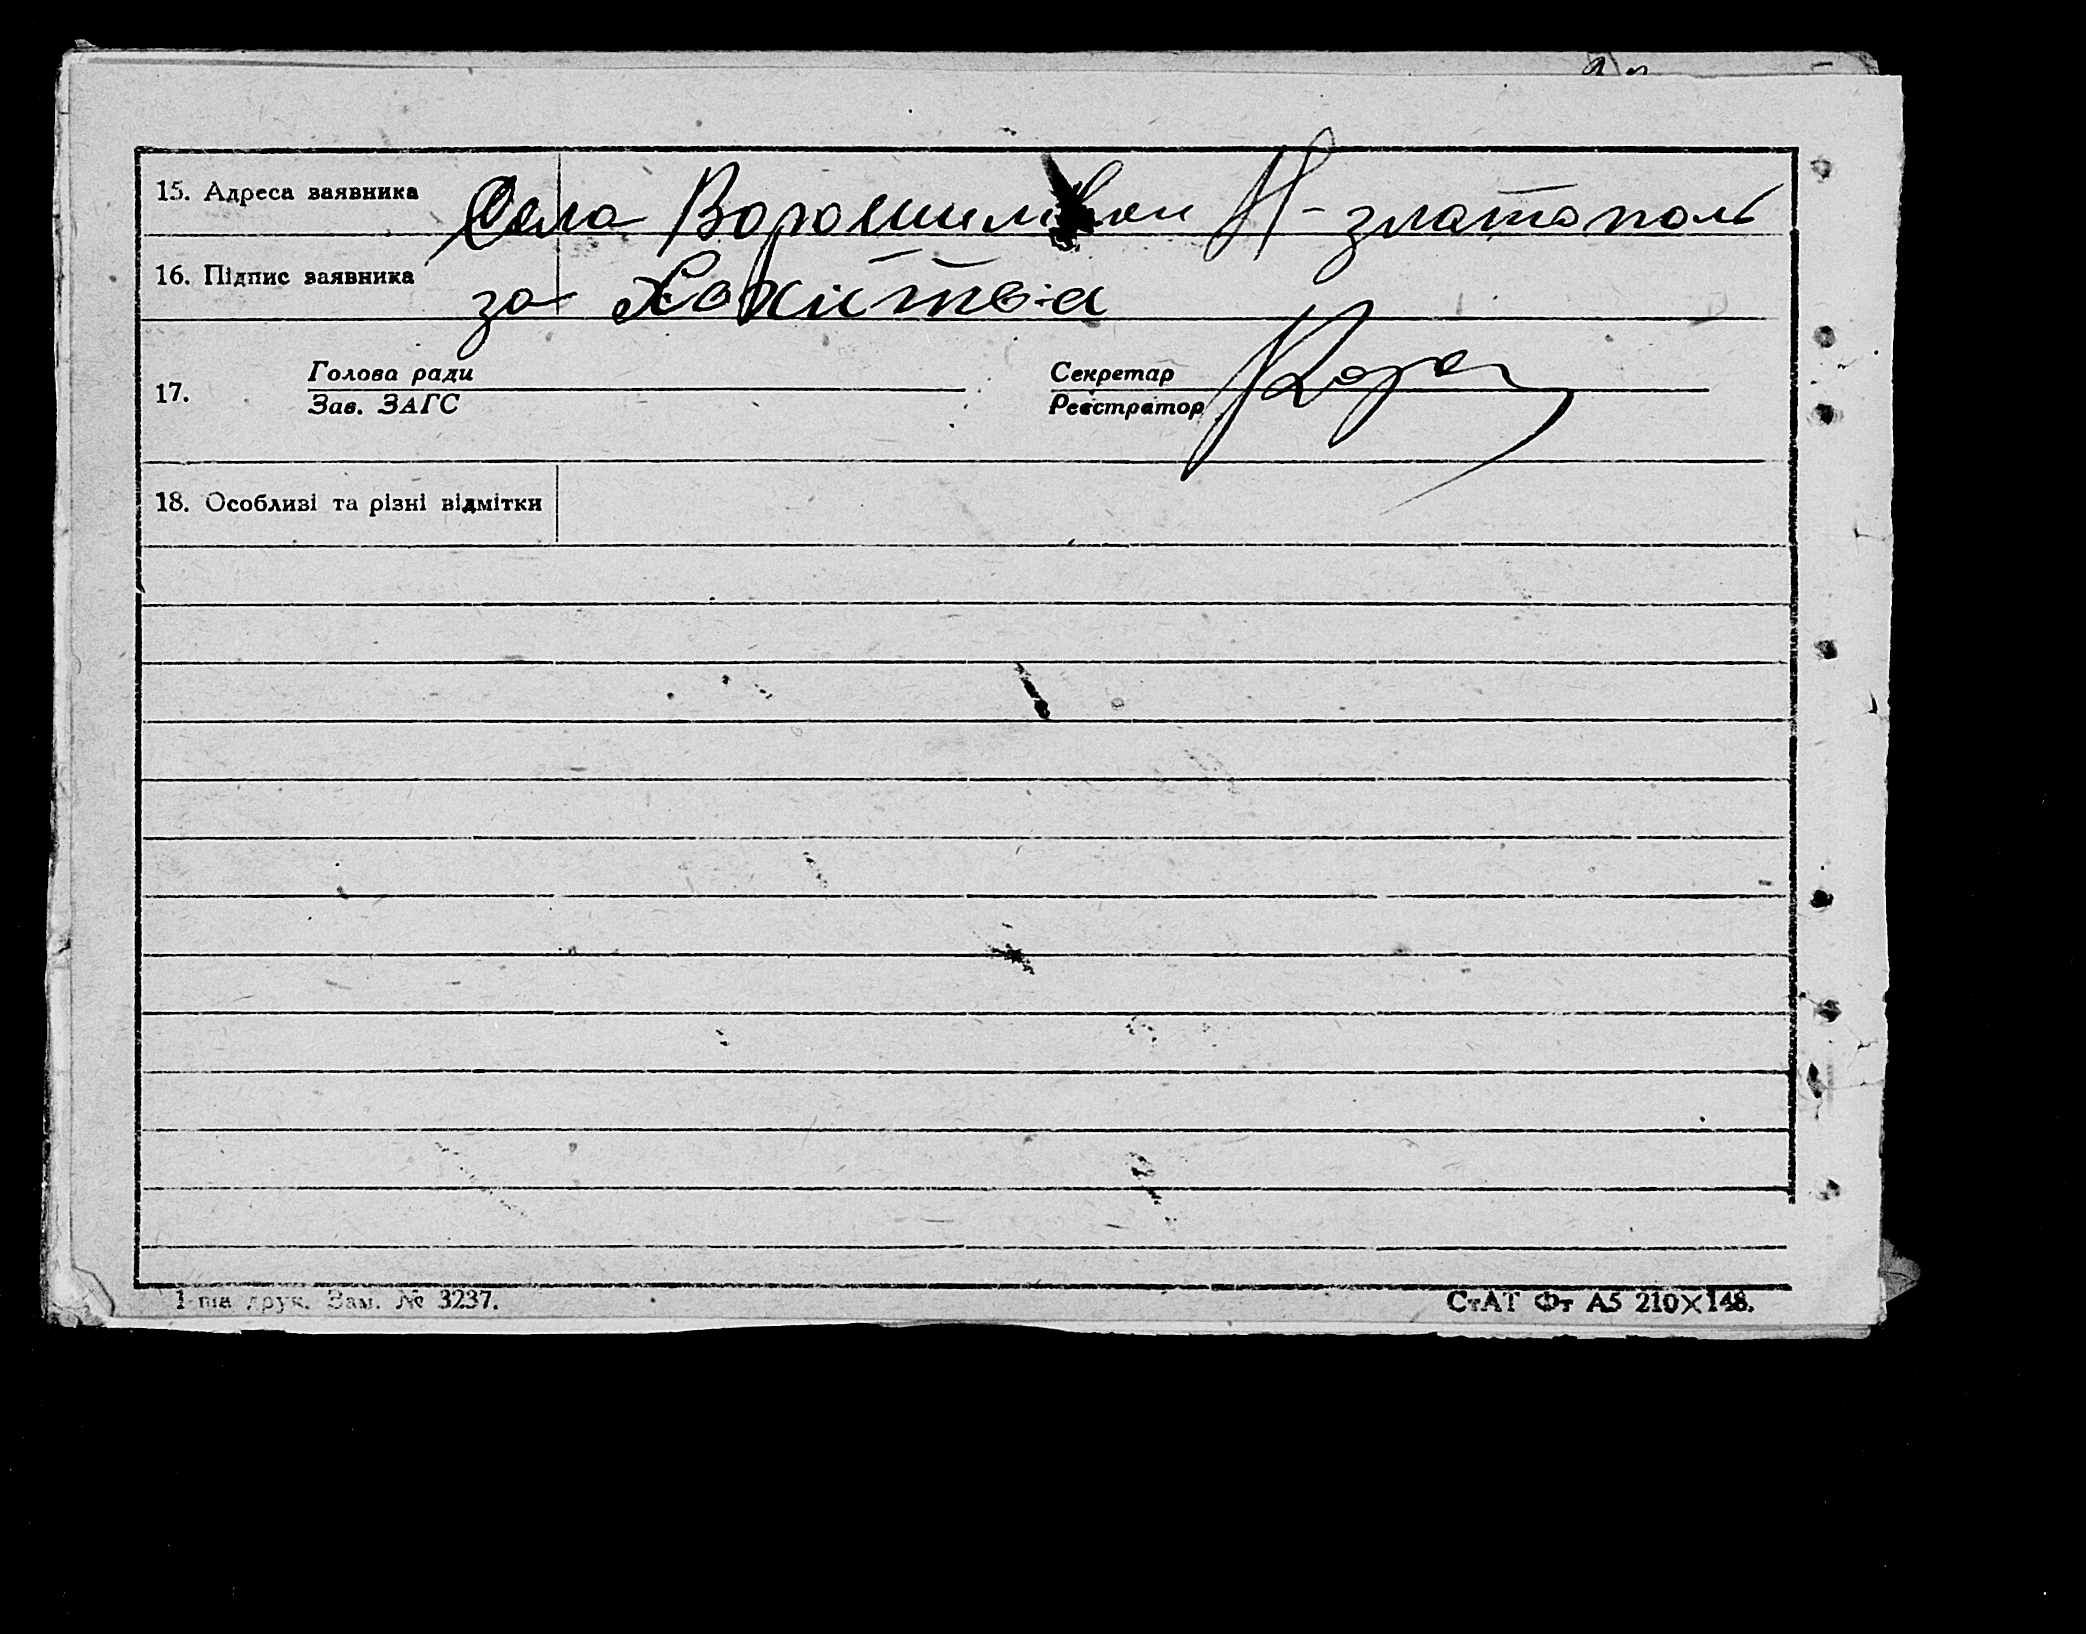 15. Адреса заявника Села Ворошиловки Н-златополь
16. Підпис заявника за
17. Голова ради Секретар
Зав. ЗАГС Реєстратор
18. Особливі та різні відмітки
1-ша друк. Зам. № 3237. СтАТ Фт А5 210×148.